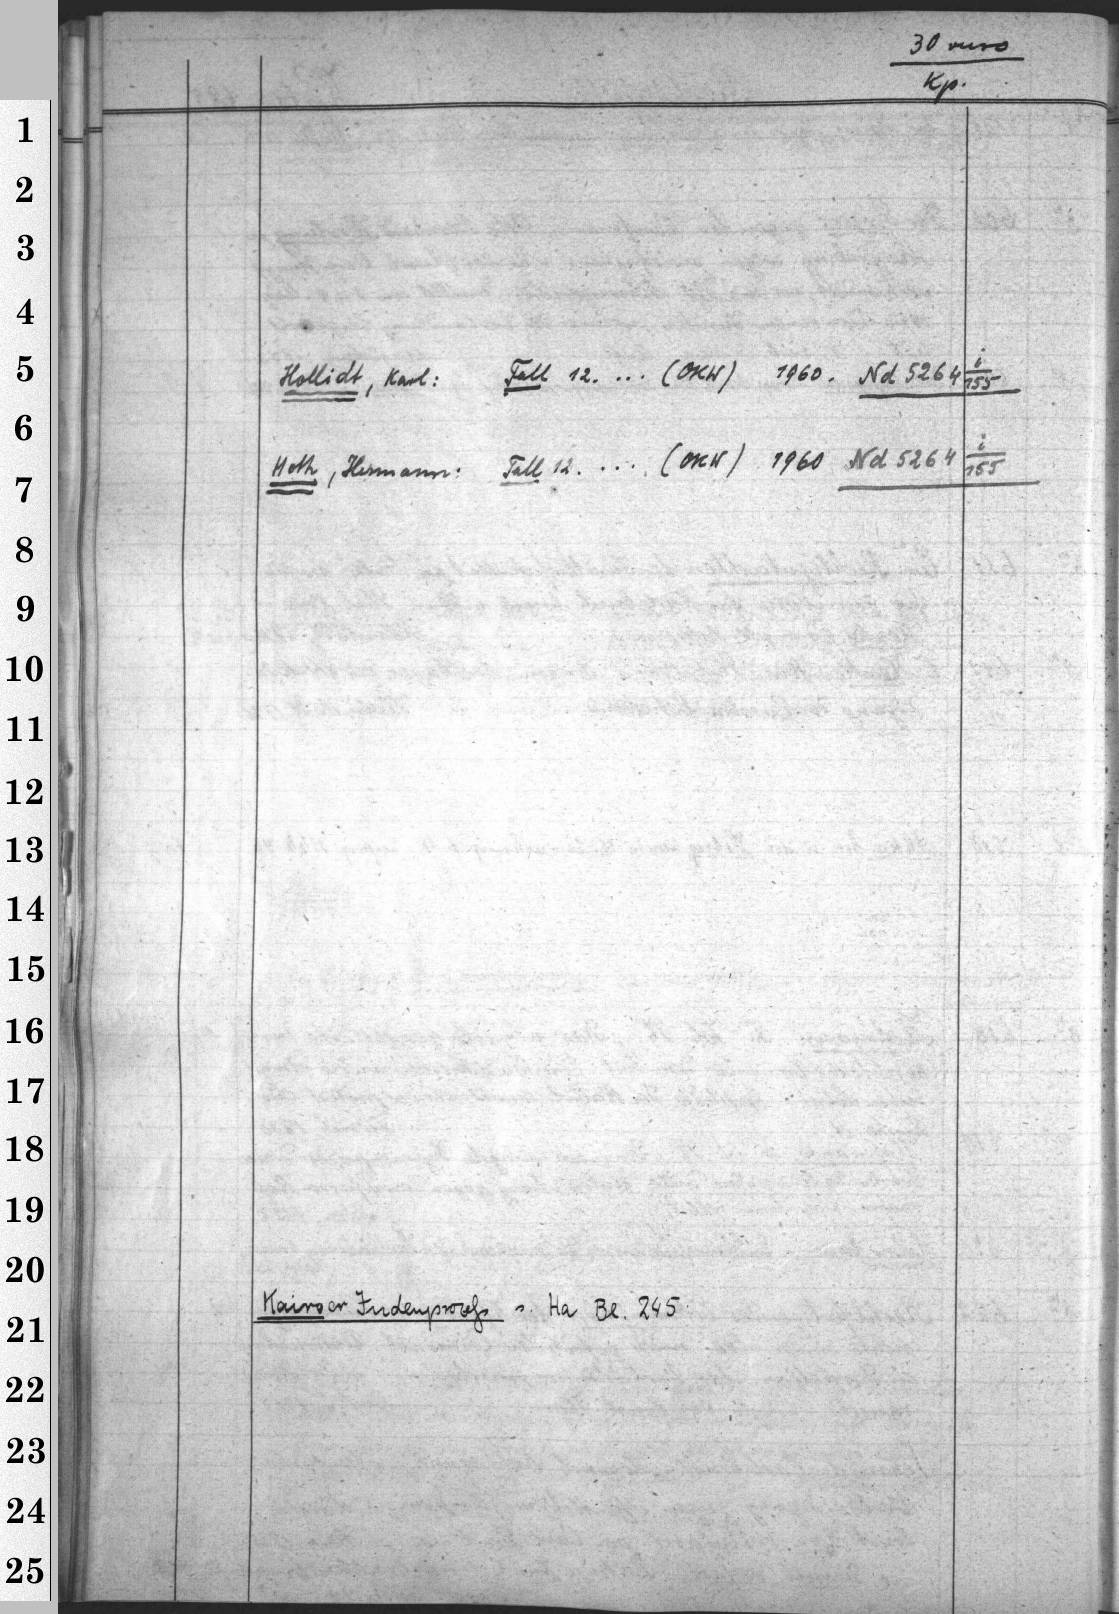 30 verso
Kp.
1
2
3
4
5
Hollidt, Karl: Fall 12. ... (OKW) 1960. Nd 5264 i/155
6
Hoth, Hermann: Fall 12. ... (OKW) 1960 Nd 5264 i/155
7
8
9
10
11
12
13
14
15
16
17
18
19
20
Kairoer Judenprozeß s. Ha Bl. 245
21
22
23
24
25